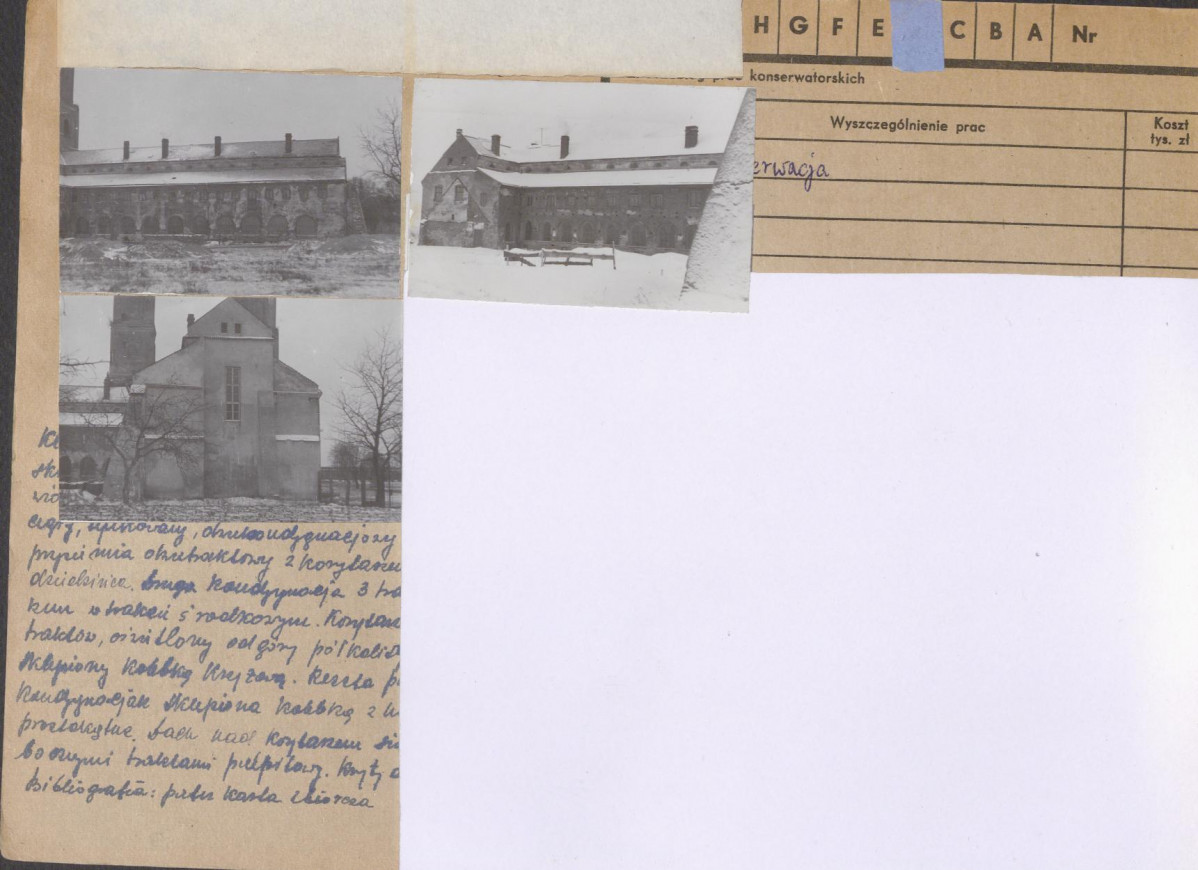 H G F E C B A Nr
konserwatorskich
Wyszczególnienie prac
Koszt
tys. zł
erwacja
dwukondygnacjowy
dwutraktowy z korytarzem
dziedzińca. Druga kondygnacja 3 tra
kum w trakcie środkowym. Korytarz
traktów, oświetlony od góry półkolis
sklepiony kolebką krzyżową. Reszta p
kondygnacjach sklepiona kolebką z lu
prostokątne. Dach nad korytarzem
bocznymi traktami pulpitowy. Kryty
Bibliografia: patrz karta zbiorcza